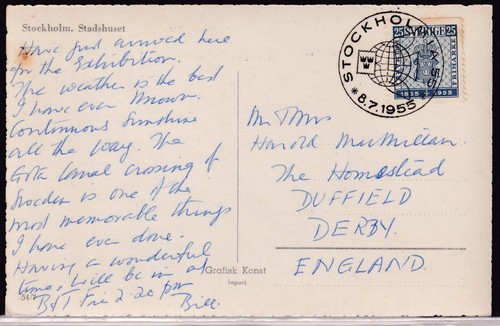 Stockholm, Stadshuset
Have just arrived here
for the Exhibition.
The weather is the best
I have ever known.
Continuous Sunshine
all the way. The
Gota Canal crossing of
Sweden is one of the
most memorable things
I have ever done.
Having a wonderful
time, Will be in at
B&T Fri 2.20 pm
Bill.
STOCKHOLM
*8.7.1955*
25 SVERIGE 25
FRIMÄRKE
1855 1955
Mr Mrs
Harold MacMillan.
The Homestead
DUFFIELD
DERBY.
ENGLAND.
Grafisk Konst
Import